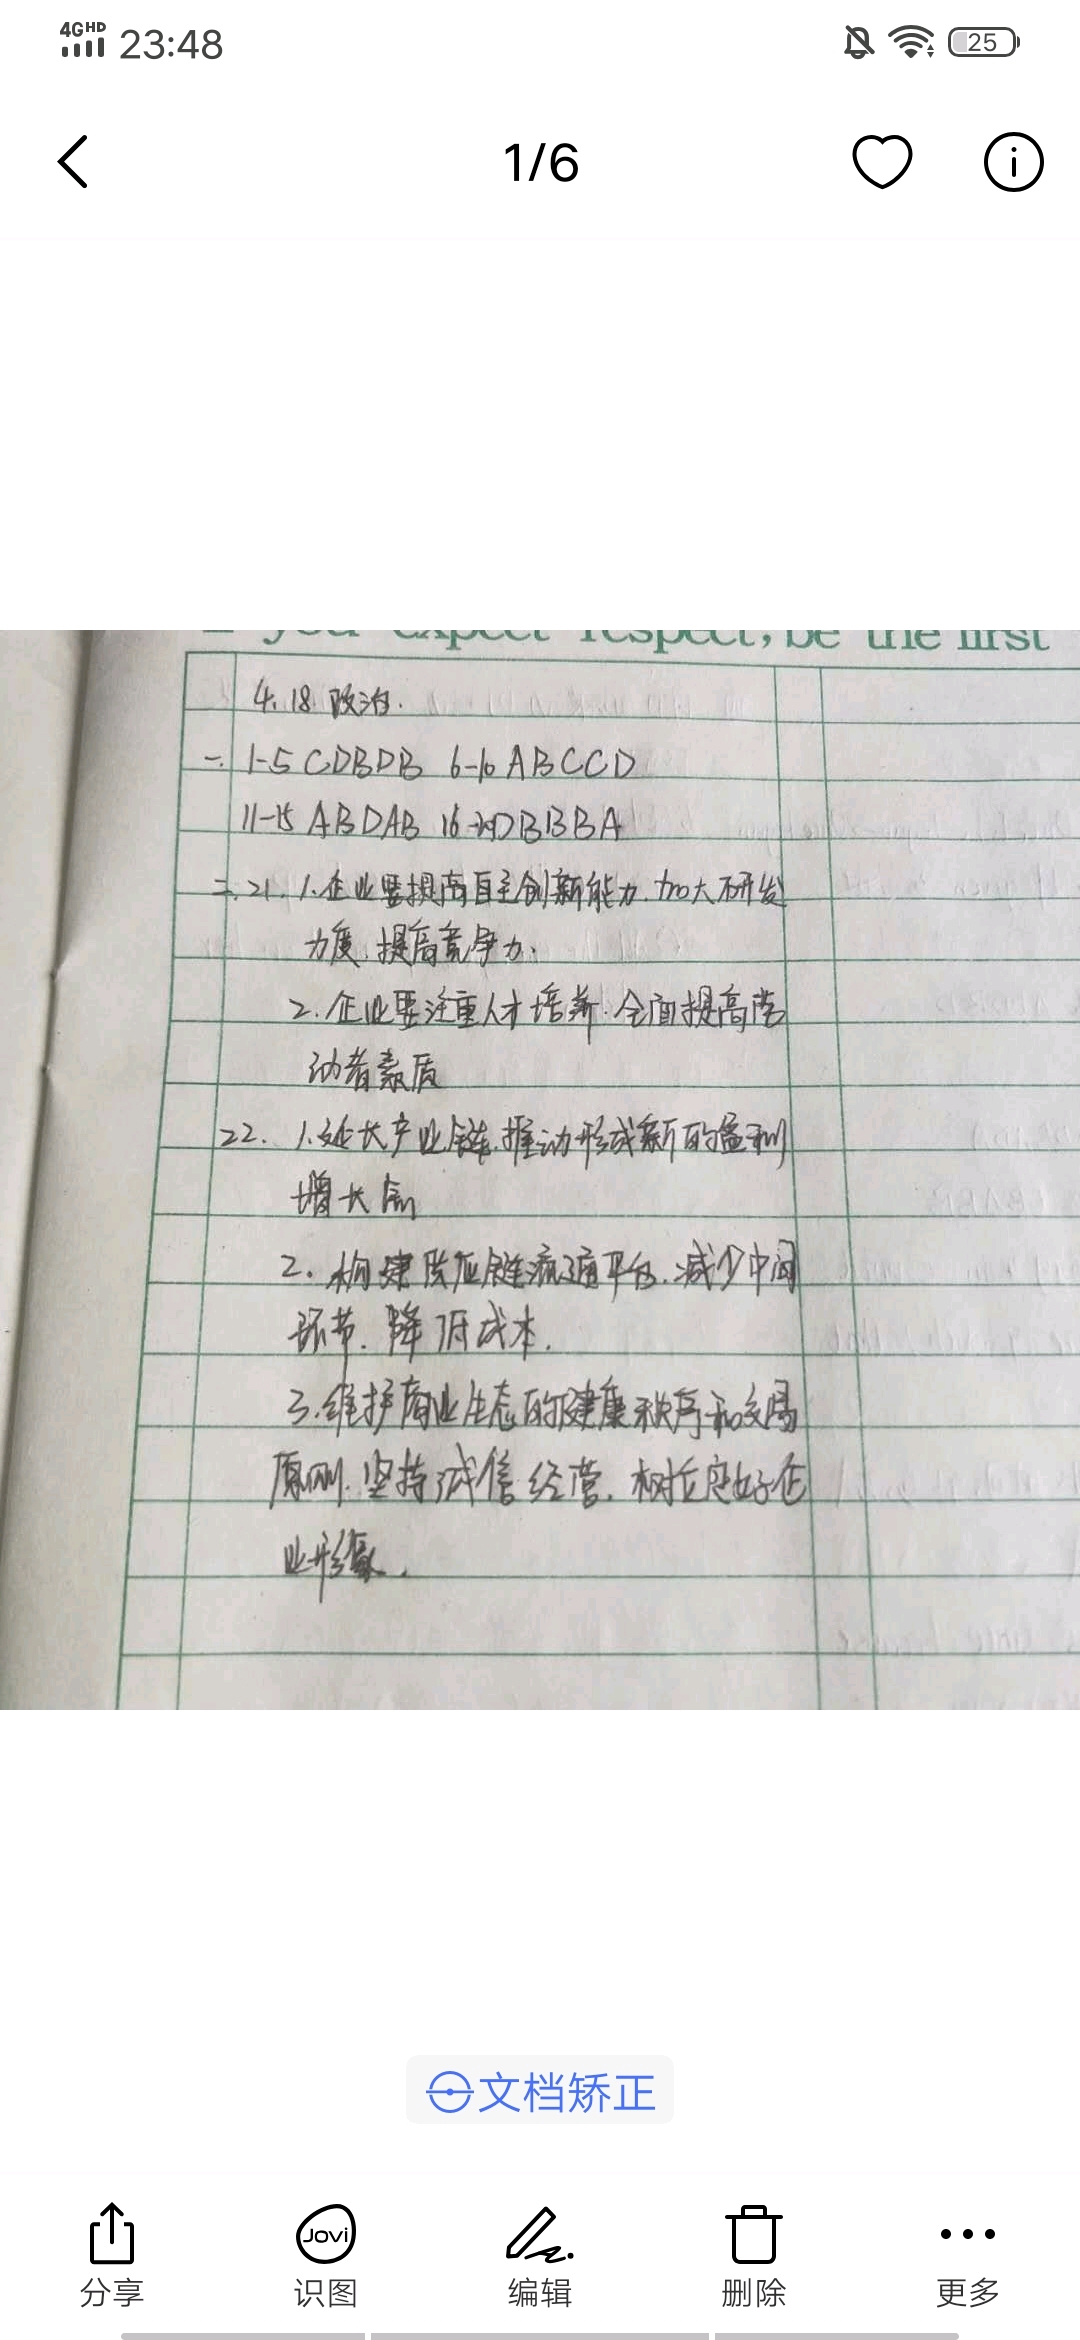 4G HD 23:48 25
1/6
you expect respect, be the first
4.18 政治.
一. 1-5 CDBDB 6-10 ABCCD
11-15 ABDAB 16-20 DBBBA
二. 21. 1.企业要提高自主创新能力.加大研发
力度.提高竞争力.
2.企业要注重人才培养.全面提高劳
动者素质
22. 1.延长产业链.推动形成新的盈利
增长点
2.构建供应链流通平台.减少中间
环节.降低成本.
3.维护商业生态的健康秩序和交易
原则.坚持诚信经营.树立良好企
业形象.
文档矫正
Jovi
分享 识图 编辑 删除 更多